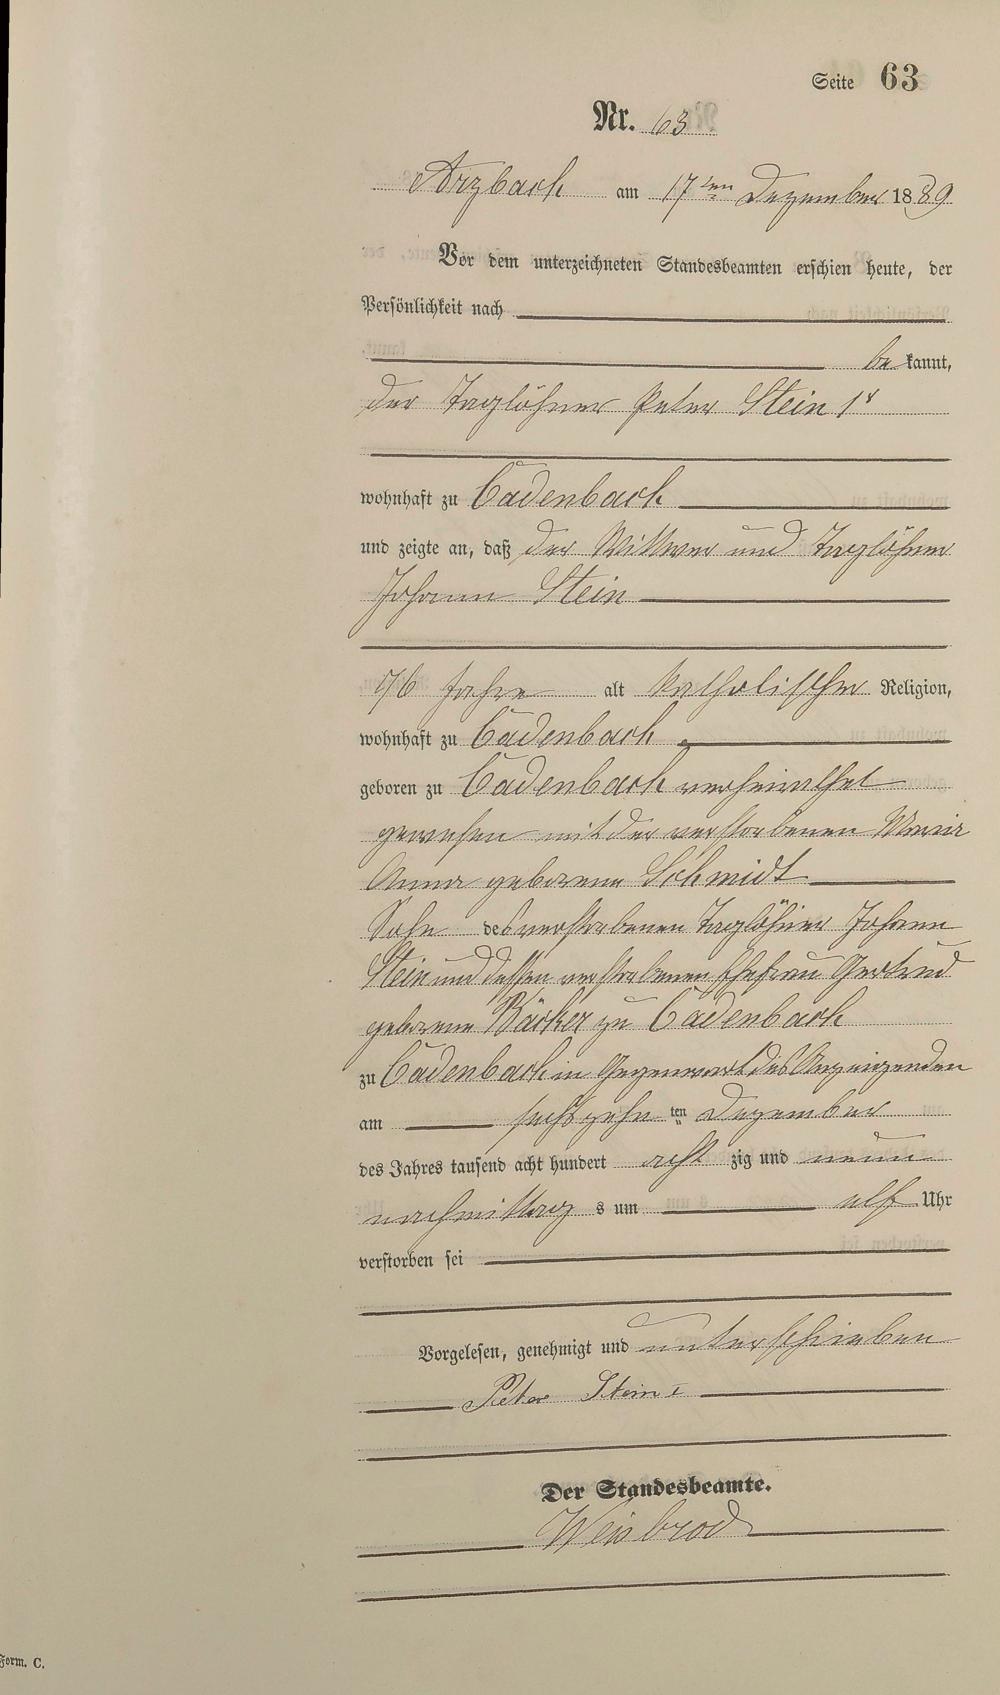 Seite 63
Nr. 63
Arzbach am 17ten Dezember 1889
Vor dem unterzeichneten Standesbeamten erschien heute, der
Persönlichkeit nach
be kannt,
der Taglöhner Peter Stein 1r
wohnhaft zu Cadenbach
und zeigte an, daß der Wittwer und Taglöhner
Johann Stein
76 Jahre alt katholischer Religion,
wohnhaft zu Cadenbach
geboren zu Cadenbach verheirathet
gewesen mit der verstorbenen Maria
Anna geborene Schmidt
Sohn des verstorbenen Taglöhner Johann
Stein und dessen verstorbenen Ehefrau Gertrud
geborene Bäcker zu Cadenbach
zu Cadenbach in Gegenwart des Anzeigenden
am sechszehn ten Dezember
des Jahres tausend acht hundert acht zig und neun
nachmittag s um elf Uhr
verstorben sei
Vorgelesen, genehmigt und unterschrieben
Peter Stein I
Der Standesbeamte.
Weisbrod
Form. C.